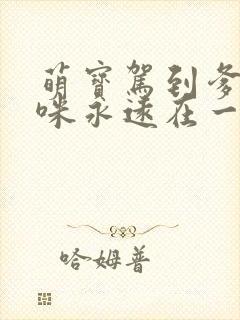 萌寶駕到爹
咪永遠在一
哈姆普